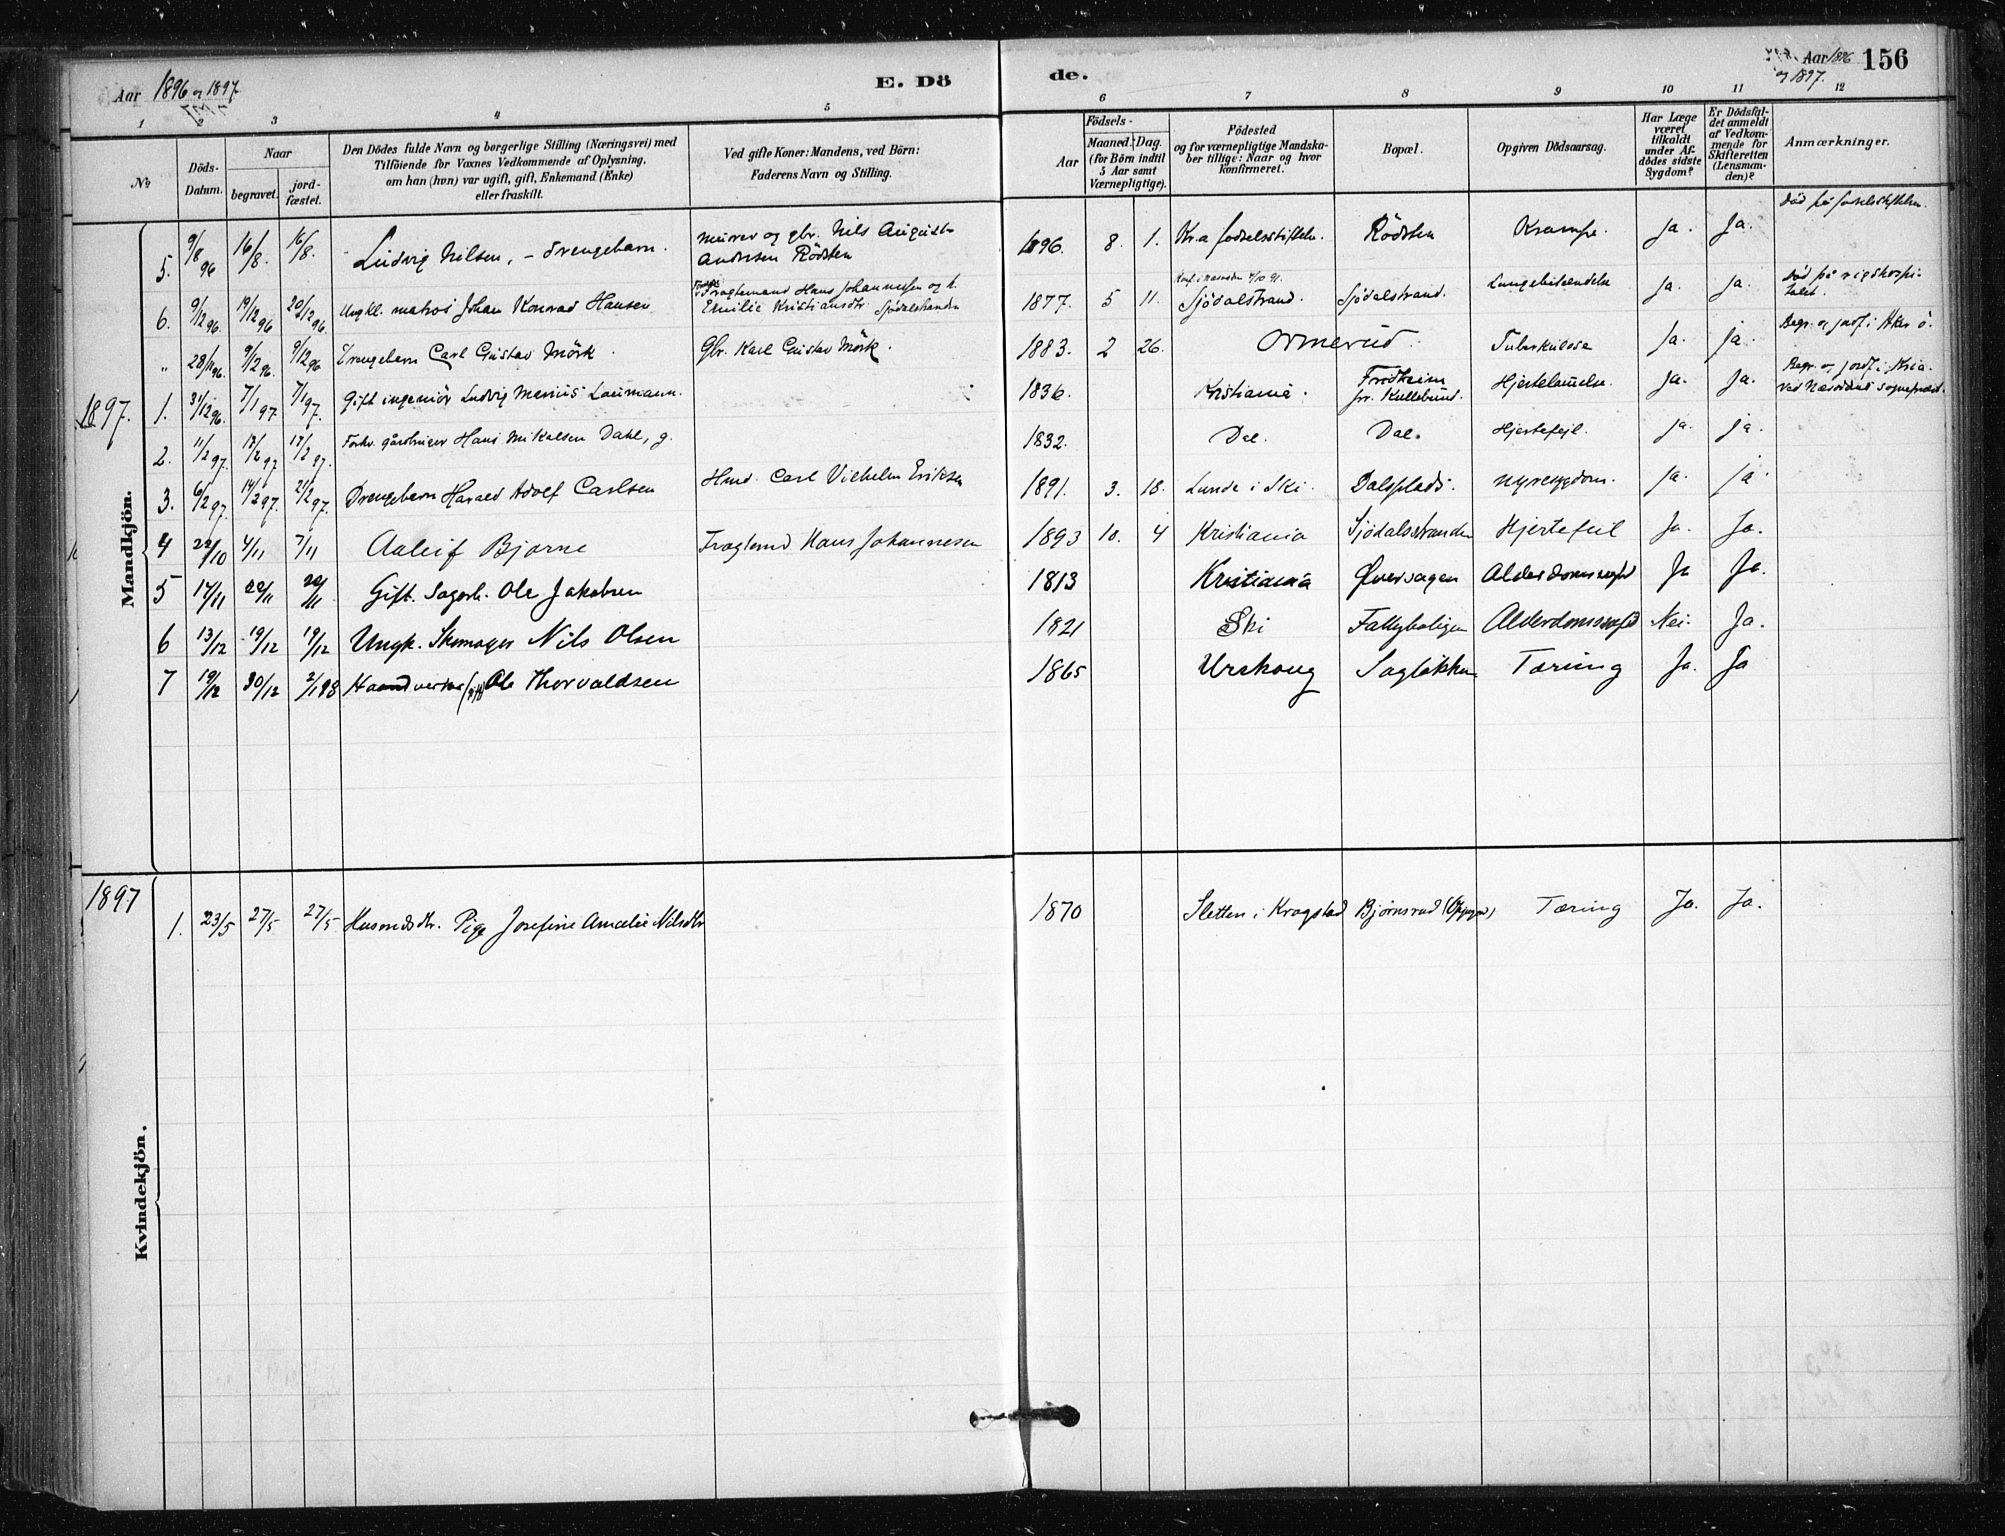 Aar 1896 og 1897.
E. Dö
de.
Aar 1896 og 1897.
156
1 2 3 4 5 6 7 8 9 10 11 12
No
Döds-Datum.
Naar
begravet.
jord-fæstet.
Den Dödes fulde Navn og borgerlige Stilling (Næringsvei) med
Tilföiende for Voxnes Vedkommende af Oplysning,
om han (hun) var ugift, gift, Enkemand (Enke)
eller fraskilt.
Ved gifte Koner: Mandens, ved Börn:
Faderens Navn og Stilling.
Födsels-
Aar
Maaned. Dag.
(for Börn indtil
5 Aar samt
Værnepligtige).
Födested
og for værnepligtige Mandska-
ber tillige: Naar og hvor
konfirmeret.
Bopæl.
Opgiven Dödsaarsag.
Har Læge
været
tilkaldt
under Af-
dödes sidste
Sygdom?
Er Dödsfal-
det anmeldt
af Vedkom-
mende for
Skifteretten
(Lensman-
den)?
Anmærkninger.
Mandkjön.
5. 9/8 96 16/8. 16/8. Ludvig Nilsen, - Drengebarn. murer og gbr. Nils August Andersen Rödsten 1896. 8. 1. Kr.a födselsstiftelse. Rödsten Krampe. Ja. Ja. Död på födselsstiftelsen.
6. 9/12 96. 19/12 96 20/12 96. Ungkl. matros Johan Konrad Hansen Fragtemand Hans Johannessen og h. Emilie Kristiansdtr Sjödalstranden 1877. 5 11. Konf. i Nesodden 4/10 91. Sjödalstrand. Sjödalstrand. Lungebetændelse Ja. Ja. Död på rigshospitalet.
" 28/11 96. 9/12 96. 9/12 96 Drengebarn Carl Gustav Mörk. Gbr. Karl Gustav Mörk. 1883. 2 26. Ormerud. Tuberkulose Ja. ja. Begr. og jordf. i Aker ö.
1897. 1. 31/12 96. 7/1 97 7/1 97. Gift ingeniör Ludvig Marius Laumann. 1836. Kristiania. Fredheim pr. Kullebund. Hjertelamelse. Ja. Ja. Begr. og jordf. i Kria. ved Nesoddens sognepræst.
2. 11/2 97. 17/2 97 17/2 97. Forhv. gårdbruger Hans Mikalsen Dahl, g. 1832. Dal. Dal. Hjertefejl. ja. ja.
3. 6/2 97. 14/2 97. 21/2 97. Drengebarn Harald Adolf Carlsen Hmd. Carl Vilhelm Eriksen 1891. 3. 18. Lunde i Ski. Dalsplads. Nyresygdom. ja. ja
4 22/10 4/11 7/11 Aaleif Bjarne Fragtemd Hans Johannesen 1893 10. 4 Kristiania Sjödalsstranden Hjertefeil Ja. Ja.
5 14/11 20/11 20/11 Gift. Sagarb. Ole Jakobsen 1813 Kristiania Øversagen Alderdomssvaghd Ja Ja.
6 13/12 19/12 19/12 Ungk. Skomager Nils Olsen 1821 Ski Fattigboligen Alderdomssvaghd Nei. Ja.
7 19/12 30/12 2/1 98 Haandverker (gift) Ole Thorvaldsen 1865 Urskoug Sagløkken Tæring Ja. Ja
Kvindekjön.
1897
1. 23/5 27/5 27/5 Husmdsdtr. Pige Josefine Amalie Nilsdtr 1870 Sletten i Kragstad Bjørnsrud Tæring Ja. Ja.